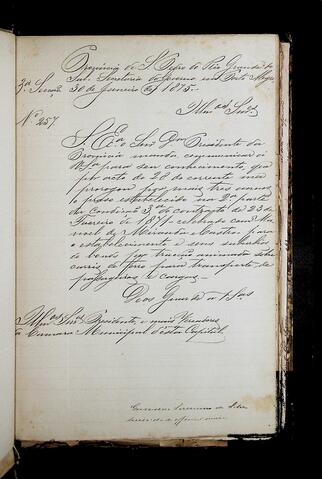 Provincia de S. Pedro do Rio Grande do
Sul. Secretaria do Governo em Porto Alegre
3ª Secção 30 de Janeiro de 1875.
Nº 257
Illmos Snrs
S. Exª o Snr Dor Presidente da
Provincia manda communicar a
VSas para seu conhecimento, que
por acto de 28 do corrente
prorogou por mais tres annos
o praso estabelecido na 2ª parte
da condição 3ª do contracto de 23 de
Fevereiro de 1871 celebrado com Ma-
noel de Miranda Castro para
o estabelecimento n'esses suburbios
de bonds por tracção animada sobre
carris de ferro para transporte de
passageiros e cargas.
Deos Guarde a VSas
Illmos Snrs Presidente, e mais Vereadores
da Camara Municipal d'esta Capital